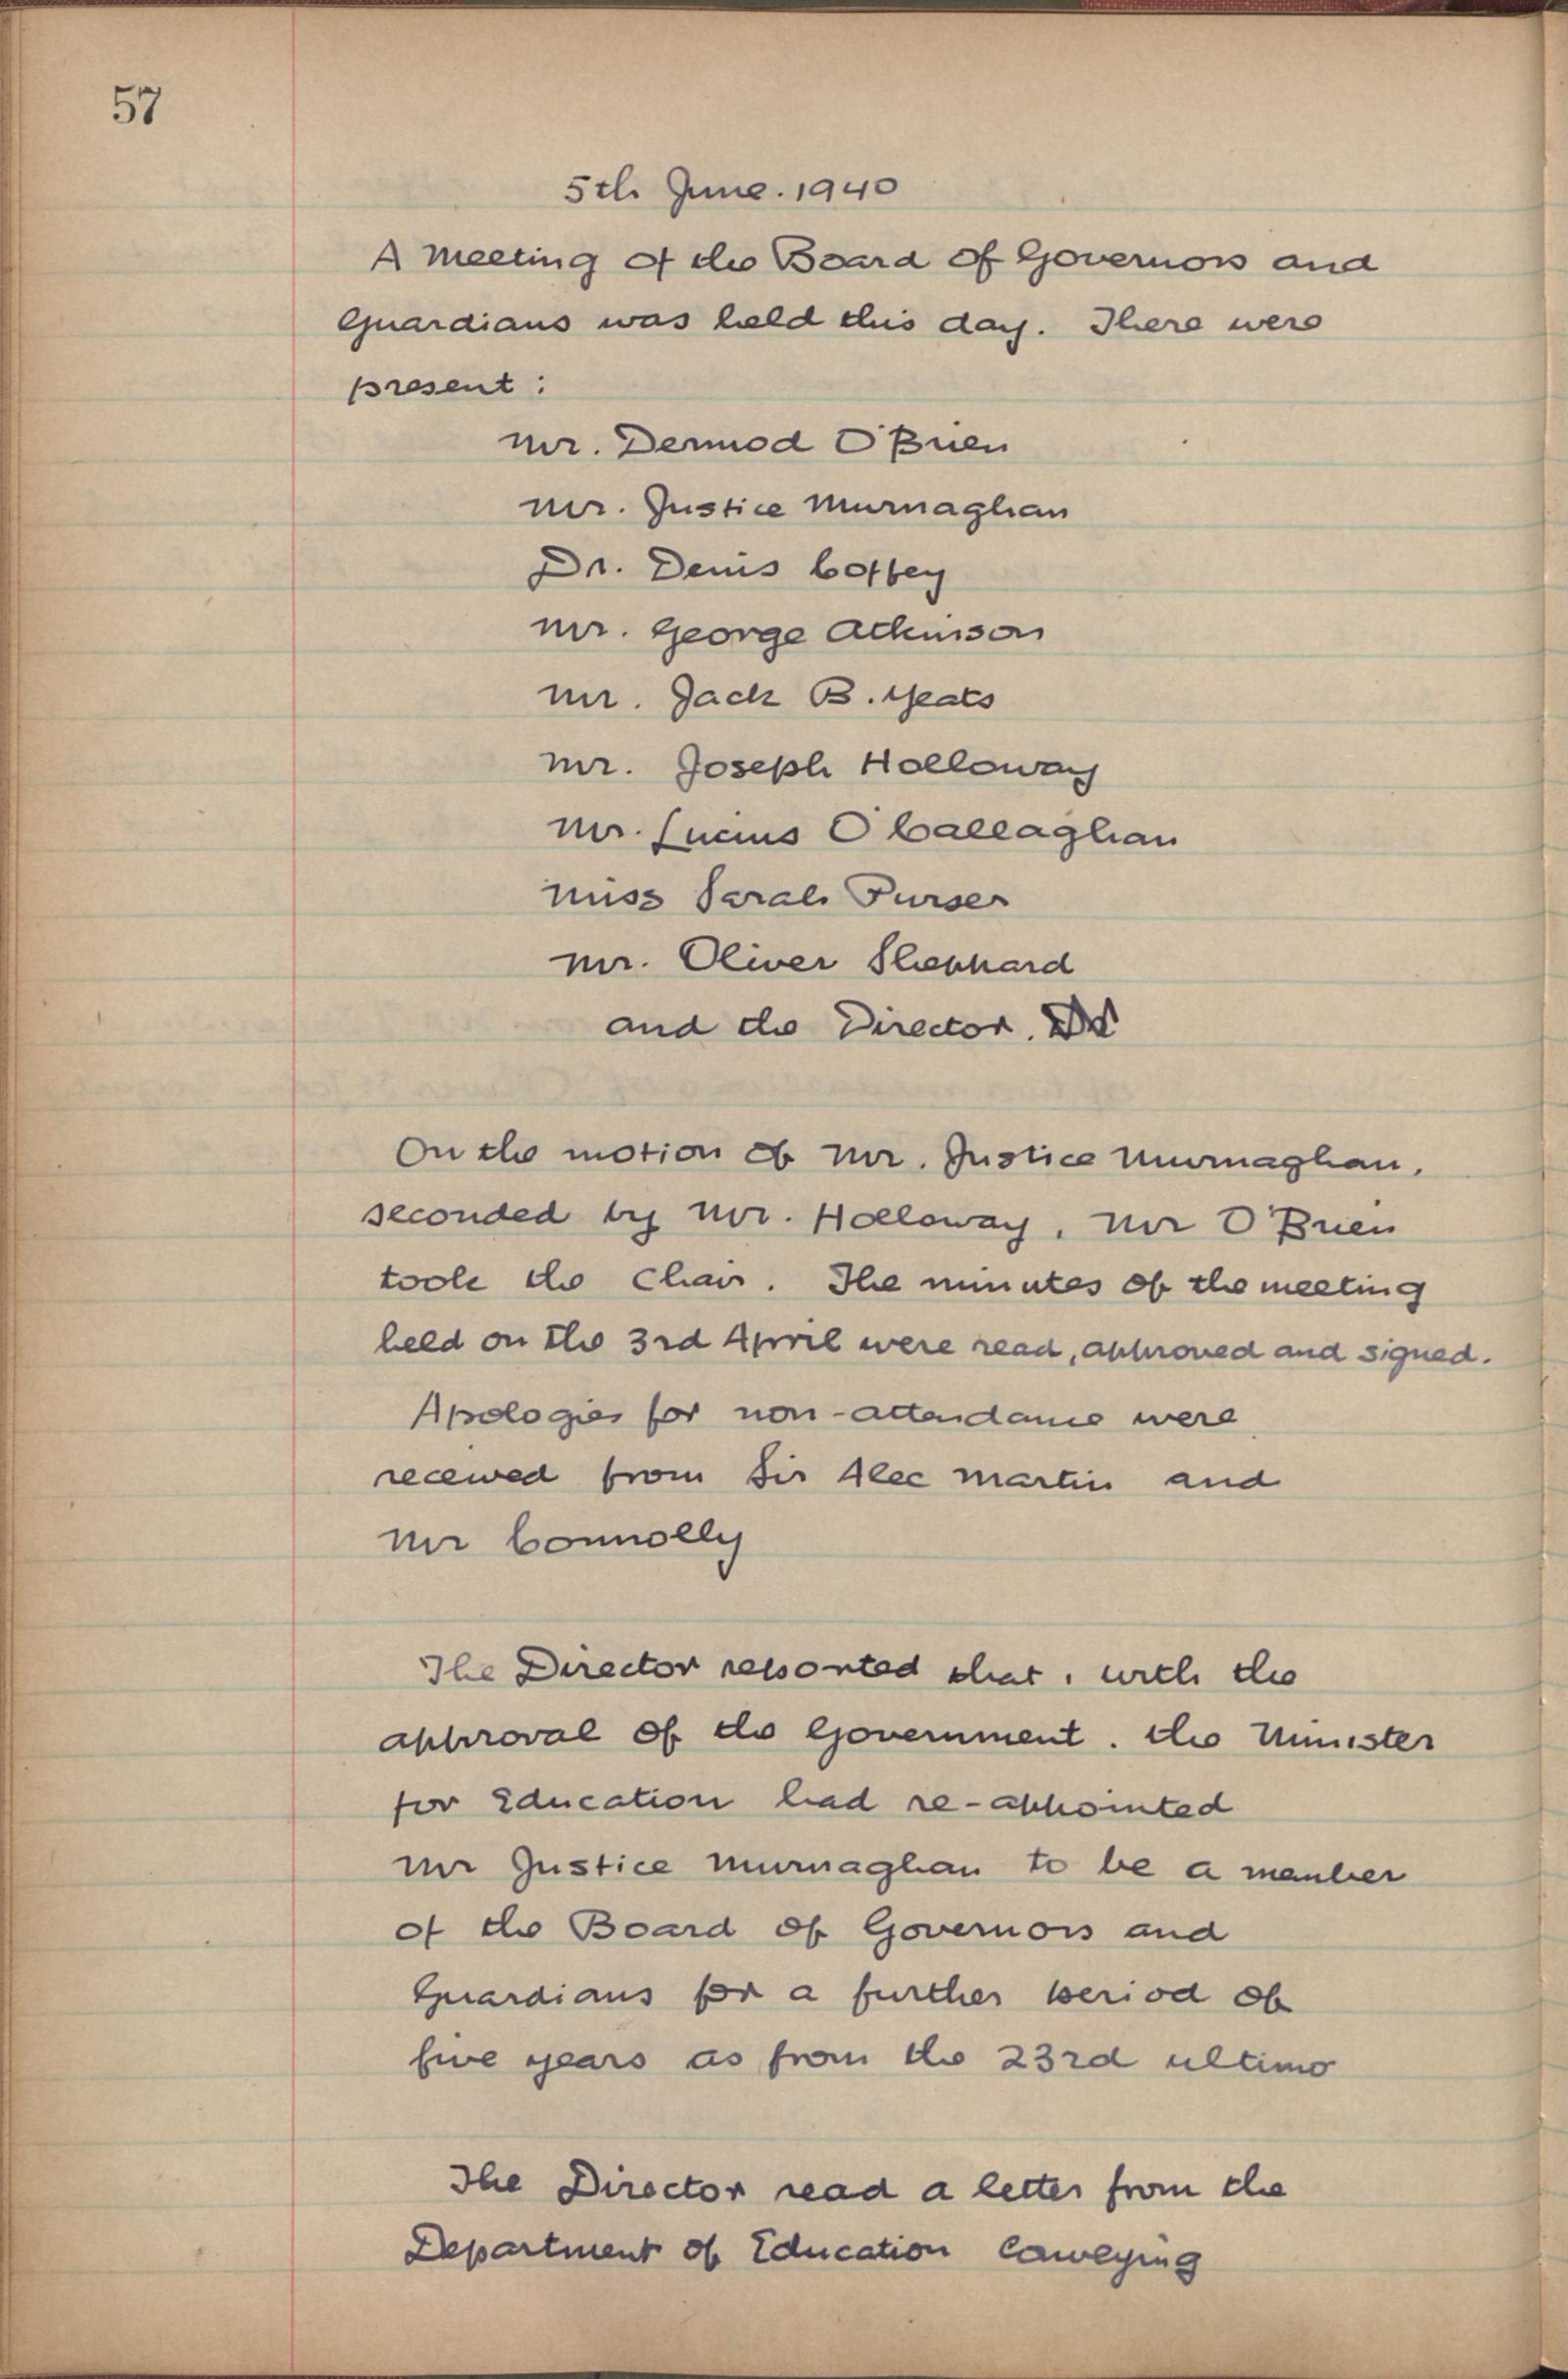 57
5th June. 1940
A Meeting of the Board of Governors and
Guardians was held this day. There were
present:
Mr. Dermod O'Brien
Mr. Justice Murnaghan
Dr. Denis Coffey
Mr. George Atkinson
Mr. Jack B. Yeats
Mr. Joseph Holloway
Mr. Lucius O'Callaghan
Miss Sarah Purser
Mr. Oliver Sheppard
and the Director.
On the motion of Mr. Justice Murnaghan,
seconded by Mr. Holloway, Mr O'Brien
took the Chair. The minutes of the meeting
held on the 3rd April were read, approved and signed.
Apologies for non-attendance were
received from Sir Alec Martin and
Mr Connolly
The Director reported that, with the
approval of the Government, the Minister
for Education had re-appointed
Mr Justice Murnaghan to be a member
of the Board of Governors and
Guardians for a further period of
five years as from the 23rd ultimo
The Director read a letter from the
Department of Education conveying